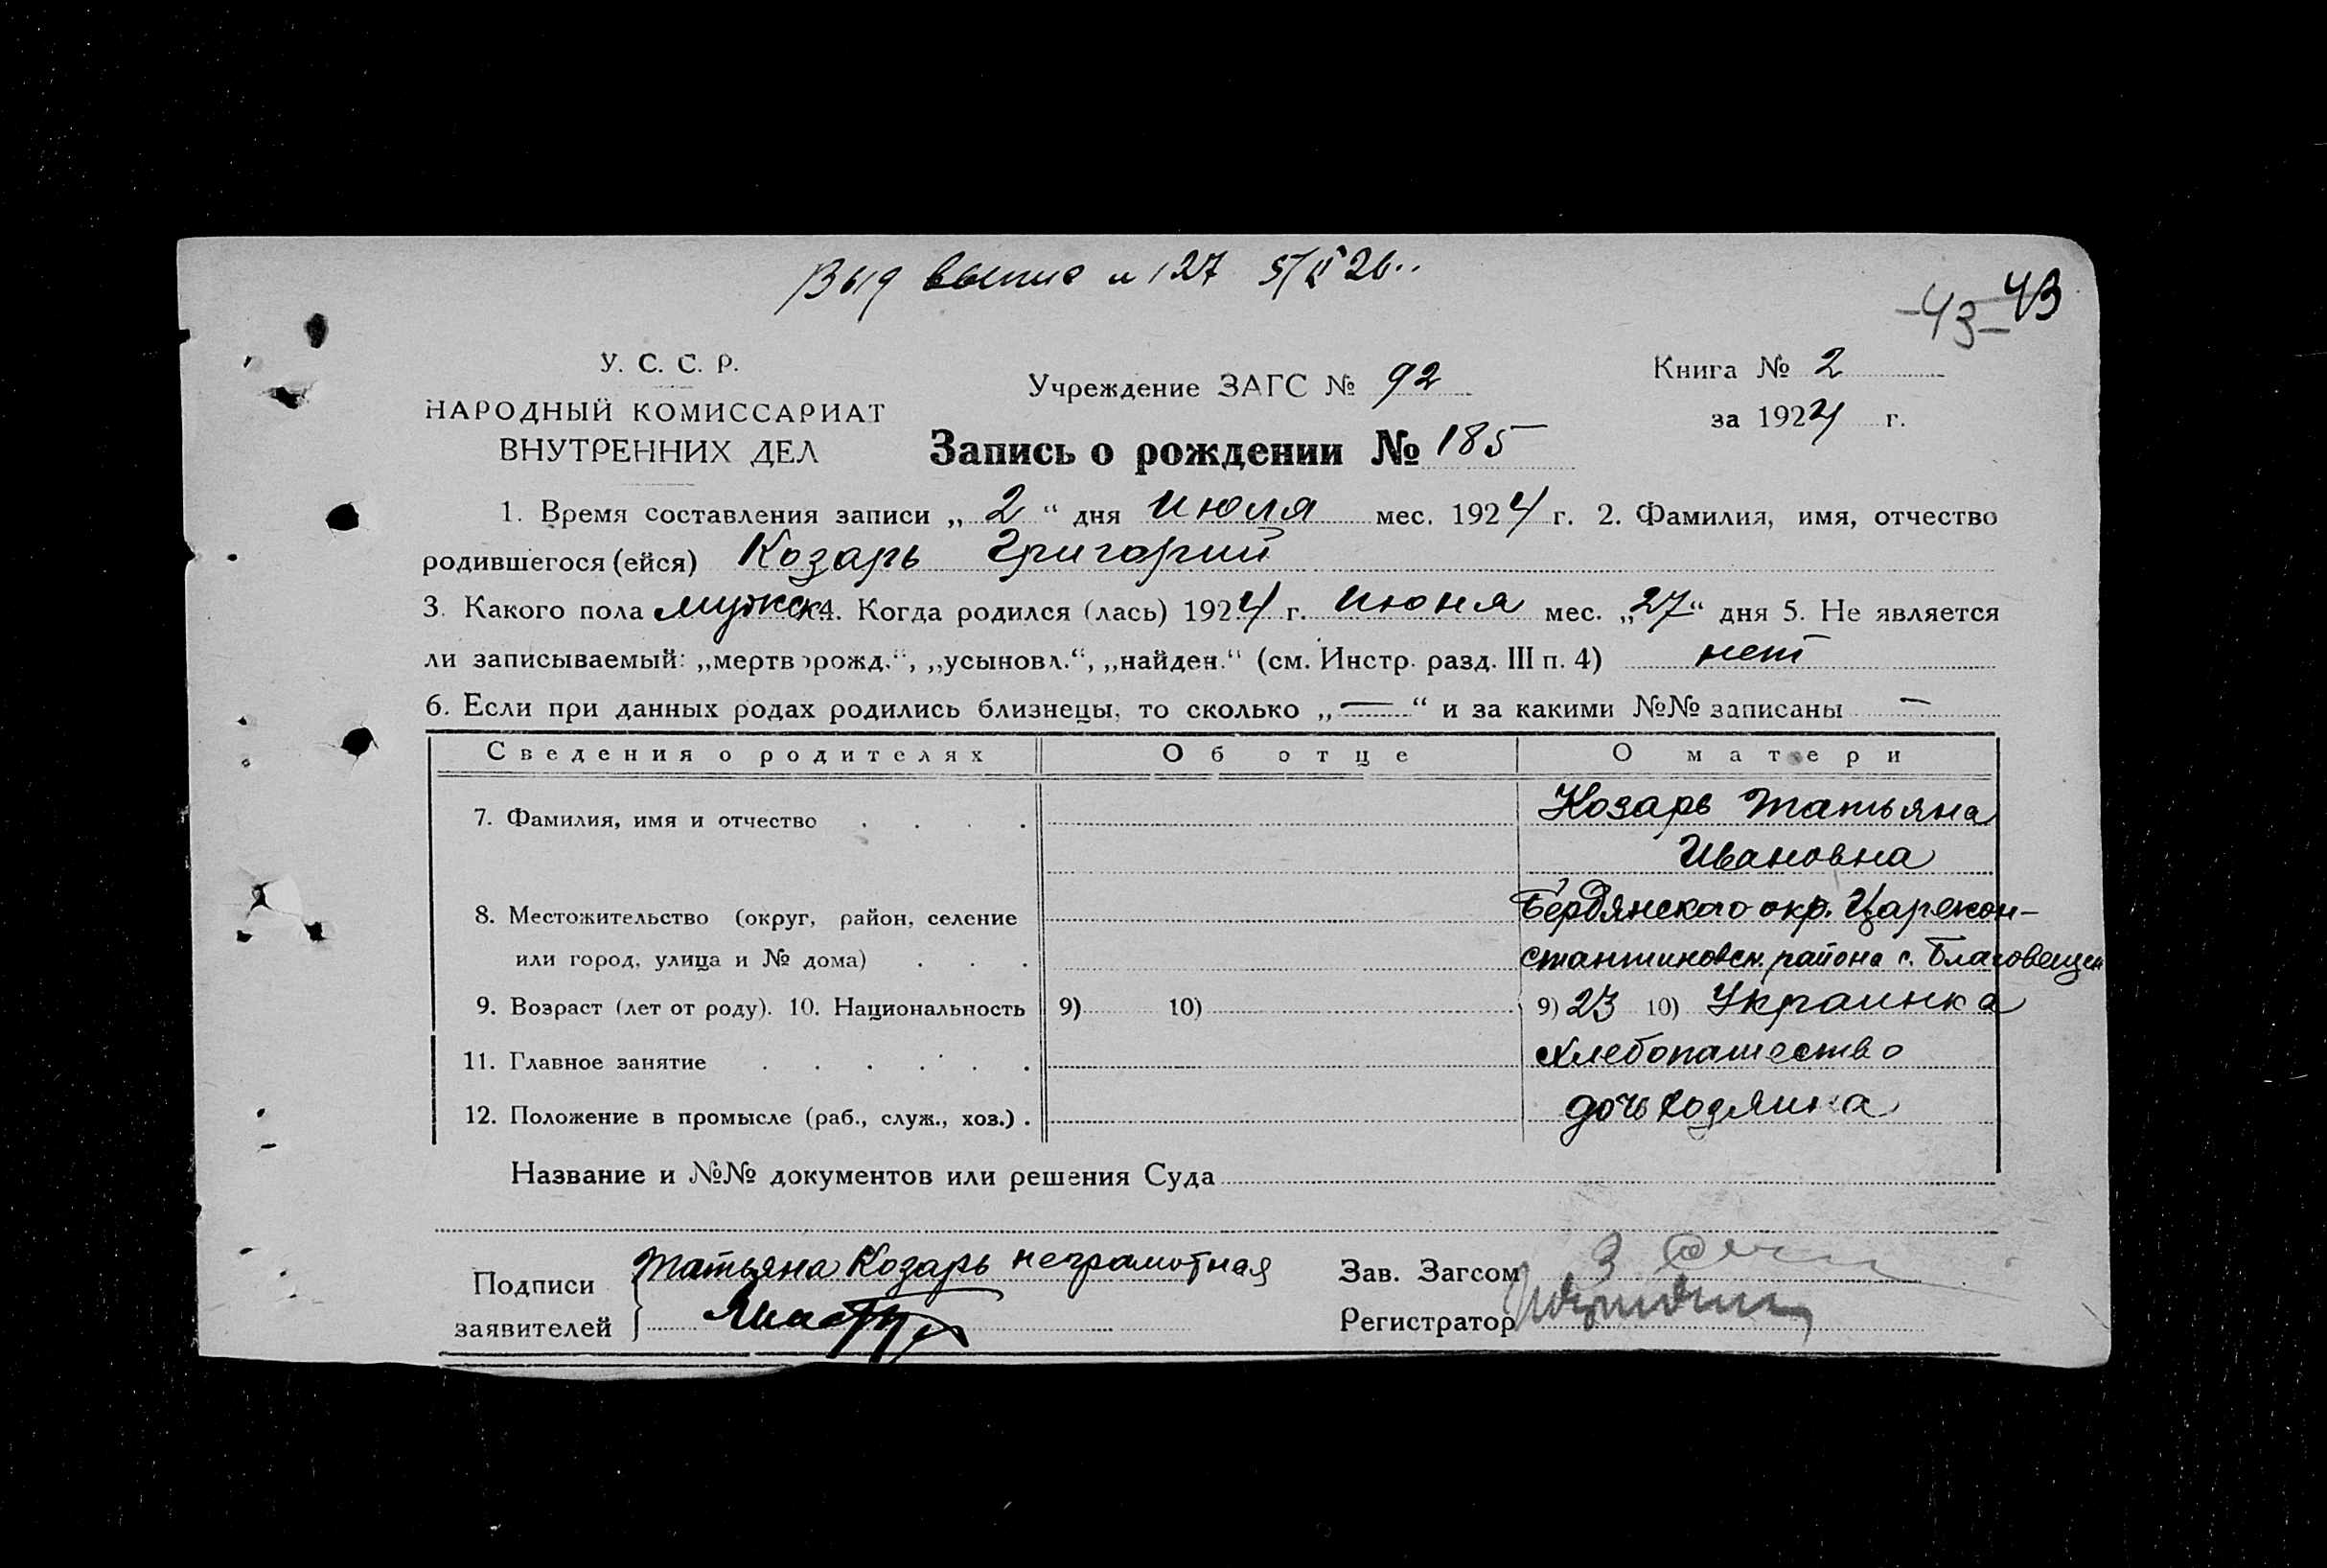 Выд выпис
127 26
-43- 43
У. С. С. Р.
НАРОДНЫЙ КОМИССАРИАТ
ВНУТРЕННИХ ДЕЛ
Учреждение ЗАГС № 92
Книга № 2
за 1924 г.
Запись о рождении № 185
1. Время составления записи „ 2 “ дня Июля мес. 1924 г. 2. Фамилия, имя, отчество
родившегося (ейся) Козарь Григорий
3. Какого пола мужск 4. Когда родился (лась) 1924 г. Июня мес. „27“ дня 5. Не является
ли записываемый: „мертворожд.“, „усыновл.“, „найден.“ (см. Инстр. разд. III п. 4) нет
6. Если при данных родах родились близнецы, то сколько „—“ и за какими №№ записаны —
Сведения о родителях Об отце О матери
7. Фамилия, имя и отчество . . . . Козарь Татьяна
Ивановна
8. Местожительство (округ, район, селение Бердянского окр. Царекон-
или город, улица и № дома) . . . стантиновск. района с. Благовещен
9. Возраст (лет от роду). 10. Национальность 9) 10) 9) 23 10) Украинка
11. Главное занятие . . . . . . Хлебопашество
12. Положение в промысле (раб., служ., хоз.) . дочь хозяина
Название и №№ документов или решения Суда
Подписи заявителей Татьяна Козарь неграмотная
Зав. Загсом
Регистратор